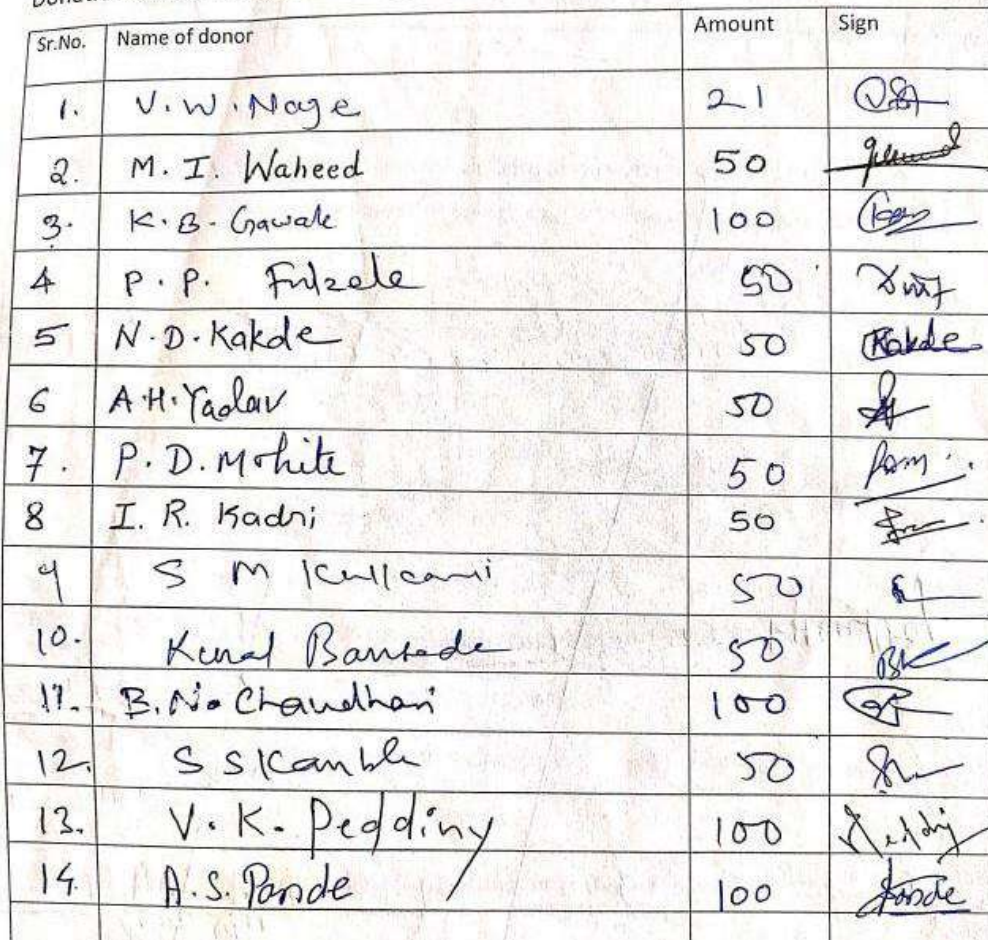 Sr.No. Name of donor Amount Sign
1. V. W. Noge 21
2. M. I. Waheed 50
3. K. B. Gawale 100
4 P. P. Fulzele 50
5 N. D. Kakde 50 Kakde
6 A. H. Yadav 50
7. P. D. Mohite 50
8 I. R. Kadri 50
9 S M Kulkarni 50
10. Kunal Bansode 50 BK
11. B. N. Chaudhari 100
12. S S Kamble 50
13. V. K. Peddiny 100
14. A. S. Pande 100 Pande